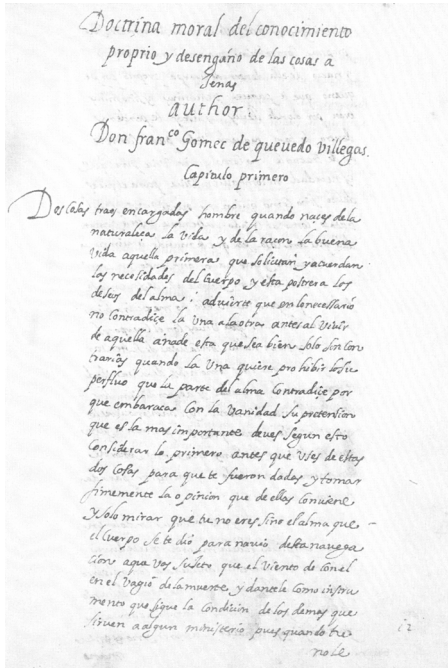 Doctrina moral del conocimiento
proprio y desengaño de las cosas a
jenas
author
Don fran.co Gomec de quevedo Villegas.
Capitulo primero
Dos cosas traes encargadas hombre quando naces de la
naturaleça la vida y de la raçon la buena
vida aquella primera que solicitan y acuerdan
las necesidades del cuerpo y esta postrera los
deseos del alma i advierte que en lo necessario
no contradiçe la una a la otra antes al vivir
de aquella añade esta que sea bien solo son con
trarias quando la una quiere prohibir lo su
perfluo que la parte del alma contradiçe por
que embaraça con la vanidad su pretension
que es la mas importante deves segun esto
considerar lo primero antes que uses de estas
dos cosas para que te fueron dadas y tomar
firmemente la opinion que de ellas conviene
y solo mirar que tu no eres sino el alma que
el cuerpo se te dio para navio desta navega
cion a que vas sujeto que el viento de con el
en el vagio de la muerte y dantele como instru
mento que sigue la condicion de los demas que
sirven a algun ministerio pues quando tu
no le
12